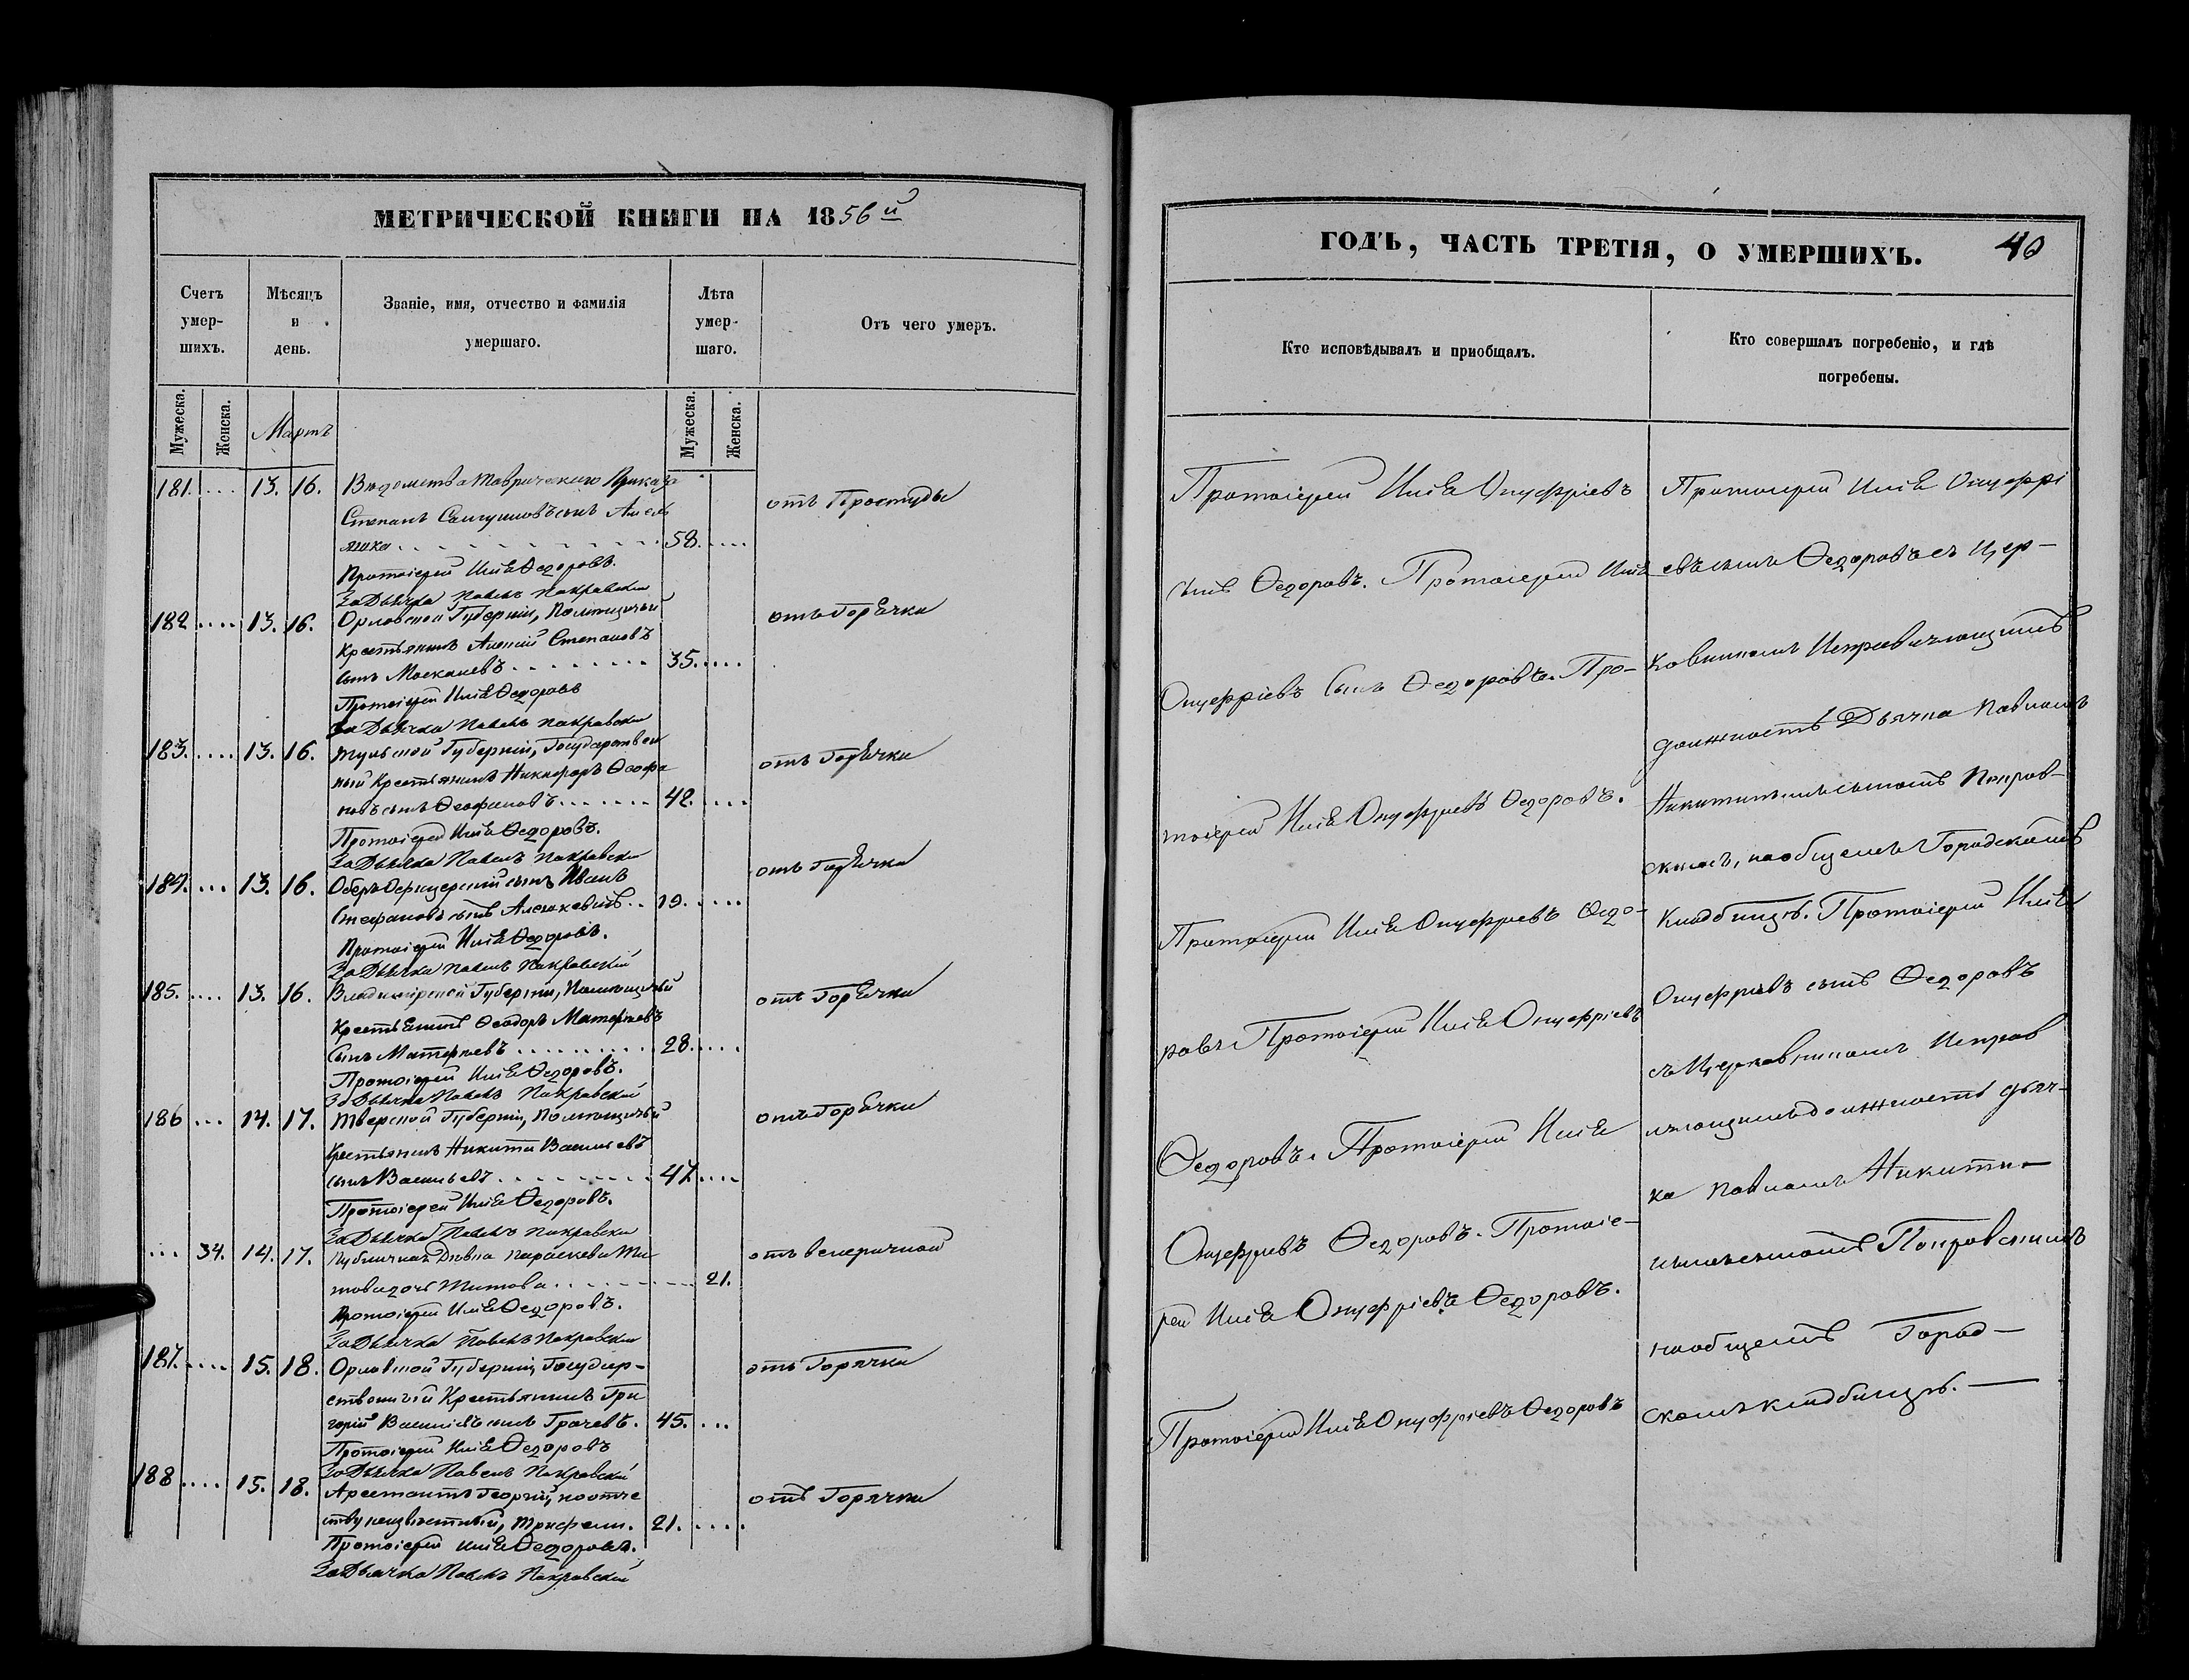 МЕТРИЧЕСКОЙ КНИГИ НА 1856й
Счетъ умер- шихъ.
Мѣсяцъ и день.
Званіе, имя, отчество и фамилія умершаго.
Лѣта умер- шаго.
Отъ чего умеръ.
Мужеска. Женска. Мартъ Мужеска. Женска.
181. .... 13. 16. Вѣдомства Таврическаго Приказа
Степанъ сынъ отъ Простуды
58. ....
Протоіерей Илія Ѳедоровъ.
За Дьячка Павелъ Покровскій
182 .... 13. 16. Орловской Губерніи, Помѣщичій отъ Горячки
Крестьянинъ Алексій Степановъ
сынъ Москалевъ 35. ....
Протоіерей Илія Ѳедоровъ
За Дьячка Павелъ Покровскій
183. .... 13. 16. Тульской Губерніи, Государствен
ный Крестьянинъ Никифоръ Ѳеофа отъ Горячки
новъ сынъ Ѳеофановъ 42. ....
Протоіерей Илія Ѳедоровъ.
За Дьячка Павелъ Покровскій
184. ... 13. 16. Оберъ Офицерскій сынъ Иванъ отъ Горячки
Стефановъ сынъ 19. ....
Протоіерей Илія Ѳедоровъ.
За Дьячка Павелъ Покровскій
185. .... 13. 16. Владимірской Губерніи, Помѣщичій отъ Горячки
Крестьянинъ Ѳеодоръ Матвѣевъ
Сынъ Матвѣевъ 28. ....
Протоіерей Илія Ѳедоровъ.
За Дьячка Павелъ Покровскій
186 ... 14. 17. Тверской Губерніи, Помѣщичій отъ Горячки
Крестьянинъ Никита Васильевъ
сынъ Васильевъ 47 ....
Протоіерей Илія Ѳедоровъ.
За Дьячка Павелъ Покровскій
... 34. 14. 17. Публичная Дѣвка Параскева Ти отъ венеричной
това дочь Титова 21.
Протоіерей Илія Ѳедоровъ.
За Дьячка Павелъ Покровскій
187. .... 15. 18. Орловской Губерніи, Государ- отъ Горячки
ственный Крестьянинъ Гри
горій Васильевъ сынъ Грачевъ. 45. ...
Протоіерей Илія Ѳедоровъ
За Дьячка Павелъ Покровскій
188 .... 15. 18. Арестантъ Георгій, по отче отъ Горячки
ству неизвѣстный, 21. ....
Протоіерей Илія Ѳедоровъ.
За Дьячка Павелъ Покровскій
ГОДЪ, ЧАСТЬ ТРЕТІЯ, О УМЕРШИХЪ. 40
Кто исповѣдывалъ и пріобщалъ.
Кто совершалъ погребеніе, и гдѣ погребены.
Протоіерей Илія Онуфріевъ
сынъ Ѳедоровъ. Протоіерей Илія
Онуфріевъ Сынъ Ѳедоровъ. Про-
тоіерей Илія Онуфріевъ Ѳедоровъ.
Протоіерей Илія Онуфріевъ Ѳедо-
ровъ Протоіерей Илія Онуфріевъ
Ѳедоровъ. Протоіерей Илія
Онуфріевъ Ѳедоровъ. Протоіе-
рей Илія Онуфріевъ Ѳедоровъ.
Протоіерей Илія Онуфріевъ Ѳедоровъ
Протоіерей Илія Онуфрі
евъ сынъ Ѳедоровъ съ цер-
ковникомъ Исправляющимъ
должность Дьячка Павломъ
Никитинымъ сыномъ Покров-
скимъ, на общемъ Городскомъ
Кладбищѣ. Протоіерей Илія
Онуфріевъ сынъ Ѳедоровъ
съ Церковникомъ Исправ
ляющимъ должность дьяч-
ка Павломъ Никити-
нымъ сыномъ Покровскимъ
на общемъ Город-
скомъ кладбищѣ.